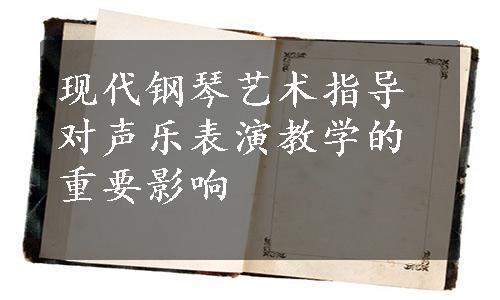 现代钢琴艺术指导
对声乐表演教学的
重要影响